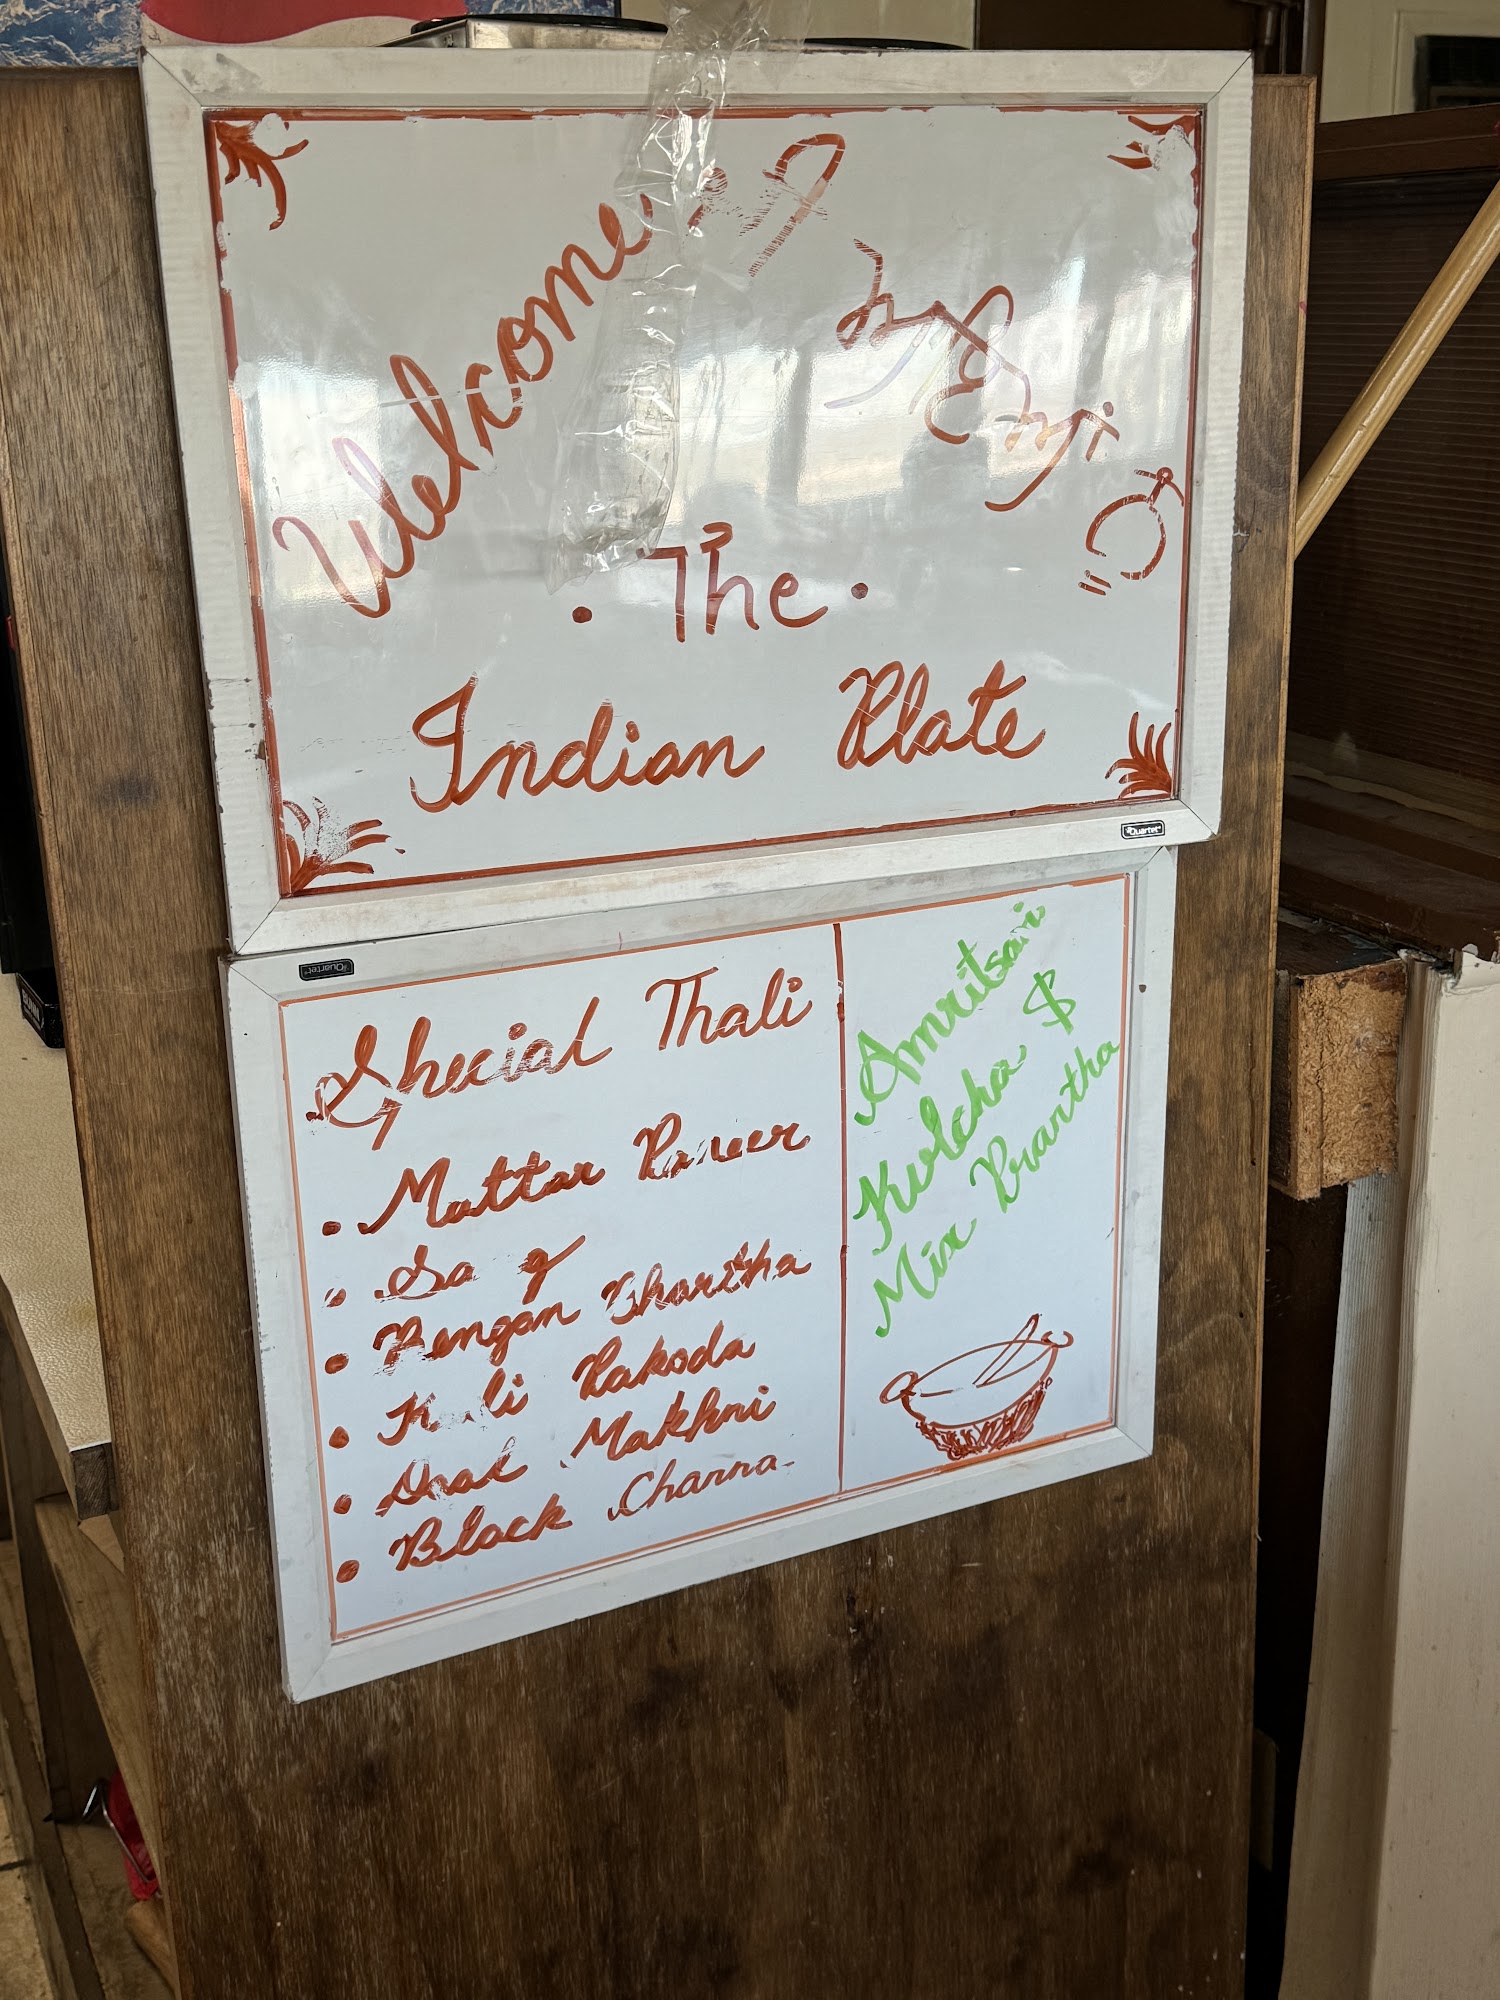 Welcome
. The .
Indian Plate
Quartet
Quartet
Special Thali
• Mattar Paneer
• Sa g
• Bengan Bhartha
• K li Pakoda
• Daal Makhni
• Black Channa
Amritsari
Kulcha $
Mix Prantha